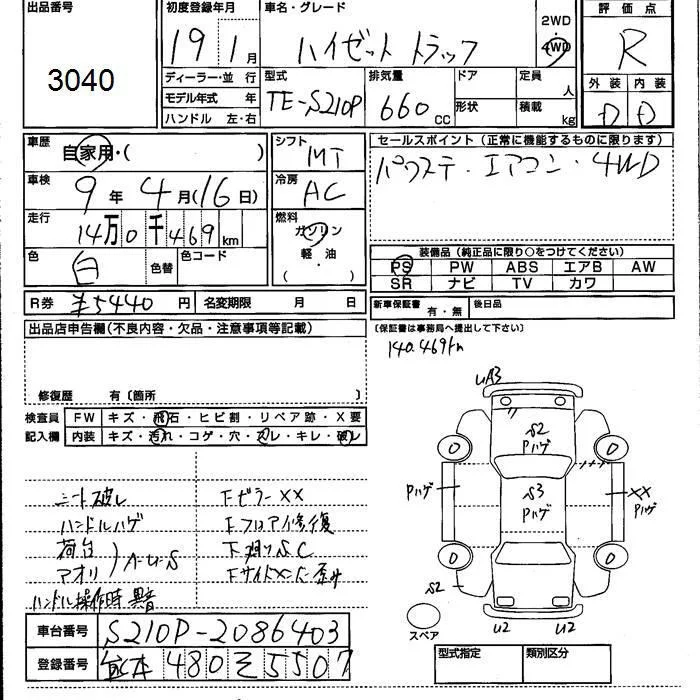 出品番号
3040
初度登録年月
19年 1月
ディーラー・並 行
モデル年式 年
ハンドル 左・右
車名・グレード
ハイゼット トラック
2WD
4WD
評価点
R
型式
TE-S210P
排気量
660 cc
ドア
形状
定員 人
積載 kg
外装 内装
D D
車歴
自家用・( )
車検
9年 4月(16日)
走行
14万0千469km
色
白
色替
色コード
シフト
MT
冷房
AC
燃料
ガソリン
軽・油
( )
セールスポイント(正常に機能するものに限ります)
パワステ・エアコン・4WD
装備品(純正品に限り○をつけてください)
PS PW ABS エアB AW
SR ナビ TV カワ
R券 ¥5440円 名変期限 月 日
新車保証書 有・無 後日品
(保証書は事務局へ提出して下さい)
140.469km
出品店申告欄(不良内容・欠品・注意事項等記載)
修復歴 有〔箇所 〕
検査員 FW キズ・飛石・ヒビ割・リペア跡・X要
記入欄 内装 キズ・汚れ・コゲ・穴・スレ・キレ・破レ
シート破レ
ハンドルハゲ
荷台
アオリ
ハンドル操作時異音
下フロア修復
下廻りSC
車台番号 S210P-2086403
登録番号 480 5507
UA3
S2
Pハゲ
S3
Pハゲ
Pハゲ
XX
Pハゲ
0
0
0
0
S2
U2
U2
スペア
型式指定 類別区分